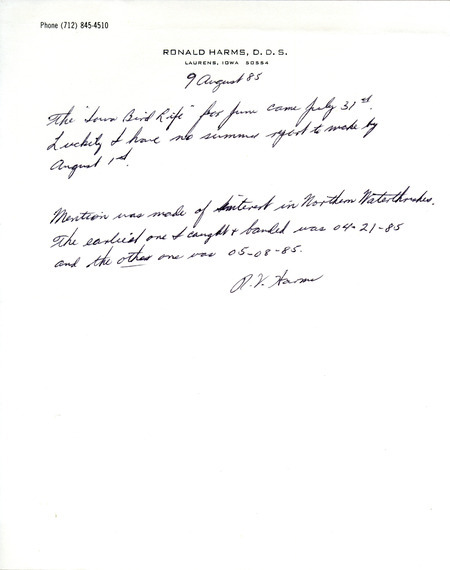 Phone (712) 845-4510
RONALD HARMS, D.D.S.
LAURENS, IOWA 50554
9 August 85
The "Iowa Bird Life" for June came July 31st.
Luckily I have no summer report to made by
August 1st.
Mention was made of interest in Northern Waterthrushes.
The earliest one I caught & banded was 04-21-85
and the other one was 05-08-85.
R.V. Harms